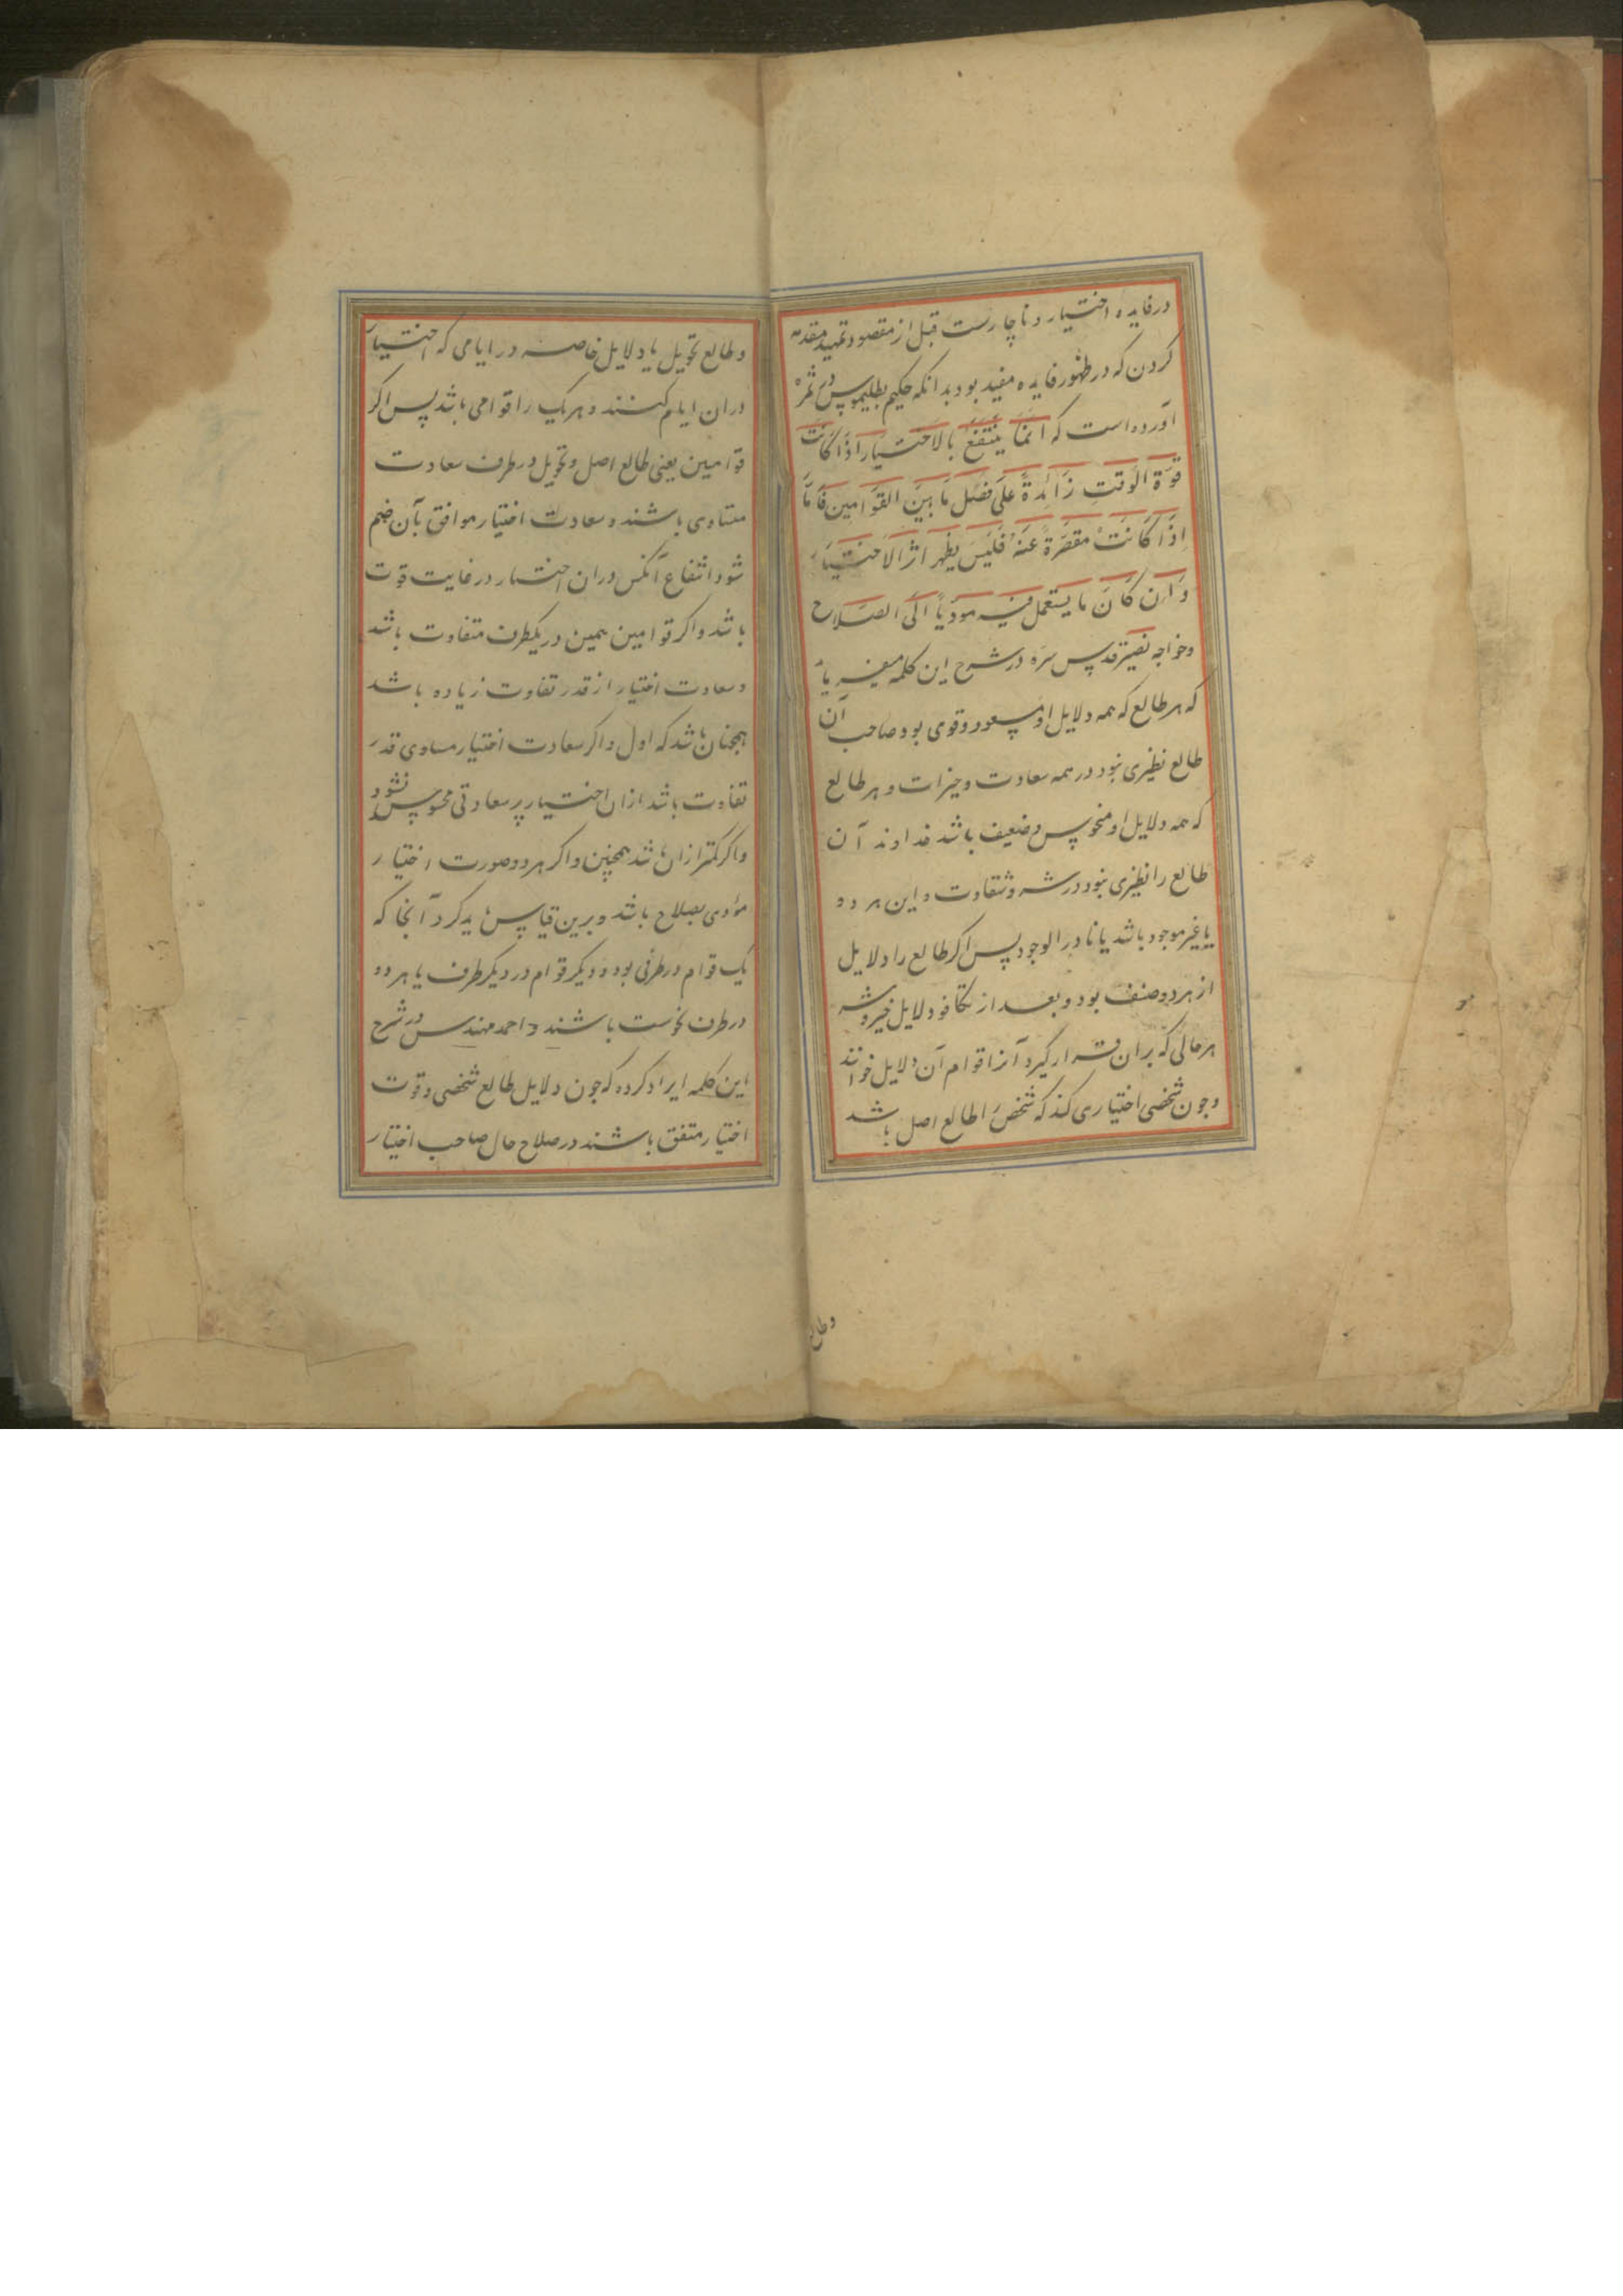 در فایده اختیار و ناچارست قبل از مقصود تمهید مقدمه
کردن که در ظهور فایده مفید بود بدانکه حکیم بطلیموس در ثمره
آورده است که انما ینتفع بالاختیار اذا کانت
قوّة الوقتِ زَائدةً علی فضل مَا بین القوامین فَامّا
اِذَا کَانَتْ مقصّرةً عنهُ فلیسَ یظهر اثر الاختیار
وَ اِن کَانَ ما یستعمل فیه مودیاً الی الصلاح
و خواجه نصیر قدس سره در شرح این کلمه میفرماید
که هر طالع که همه دلایل او مسعود و قوی بود صاحب آن
طالع نظیری نبود در همه سعادت و خیرات و هر طالع
که همه دلایل او منحوس و ضعیف باشد خداوند آن
طالع را نظیری نبود در شر و شقاوت و این هر دو
یا غیر موجود باشد یا نادر الوجود پس اکر طالع را دلایل
از هر دو صنف بود و بعد از تکافو دلایل خیر و شر
هر حالی که بران قرار کیرد آنرا قوام آن دلایل خوانند
و جون شخصی اختیاری کند که شخص را طالع اصل باشد
وطالع
و طالع تحویل یا دلایل خاصه در ایامی که اختیار
دران ایام کنند و هر یک را قوامی باشد پس اکر
قوامین یعنی طالع اصل و تحویل در طرف سعادت
متساوی باشند و سعادت اختیار موافق بآن ضم
شود انتفاع آنکس دران اختیار در غایت قوت
باشد و اکر قوامین همین در یکطرف متفاوت باشد
و سعادت اختیار از قدر تفاوت زیاده باشد
همچنان باشد که اول و اکر سعادت اختیار مساوی قدر
تفاوت باشد ازان اختیار پر سعادتی محسوس نشود
و اکر کمتر ازان باشد همچنین و اکر هر دو صورت اختیار
مؤدی بصلاح باشد و برین قیاس باید کرد آنجا که
یک قوام در طرفی بود و دیکر قوام در دیکر طرف یا هر دو
در طرف نحوست باشند و احمد مهندس در شرح
این کلمه ایراد کرده که جون دلایل طالع شخصی و قوت
اختیار متفق باشند در صلاح حال صاحب اختیار